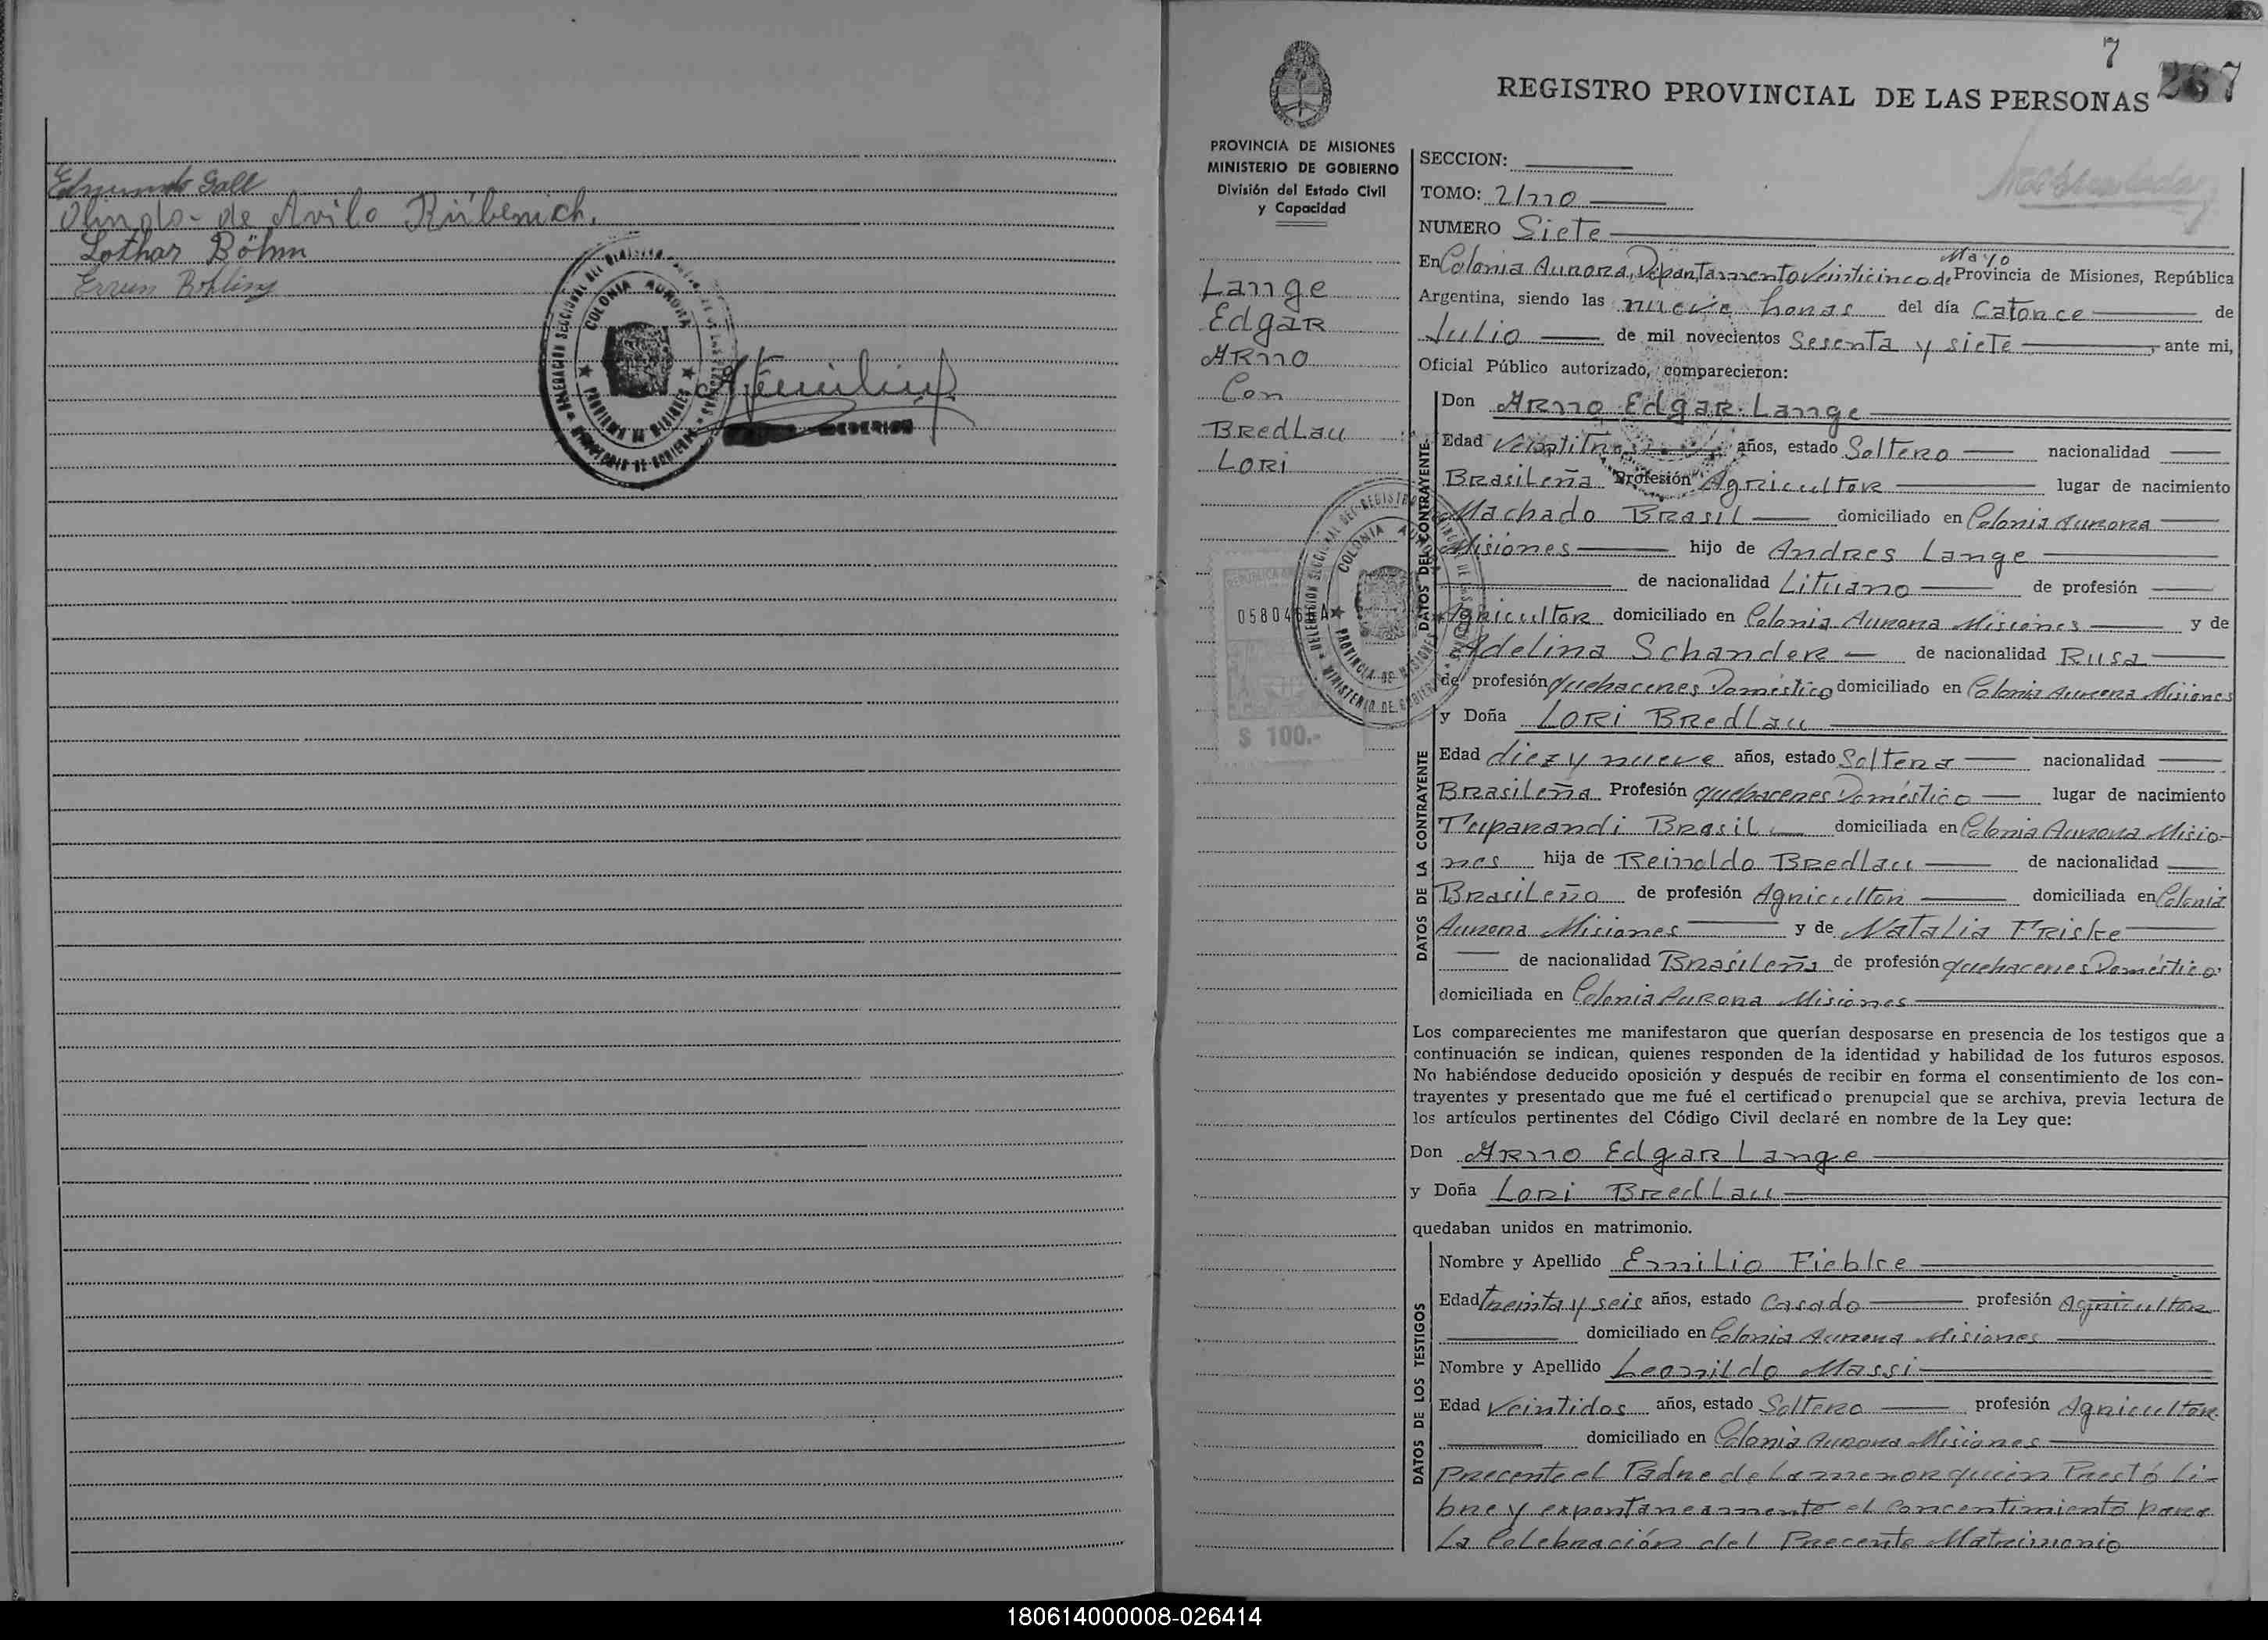 Edmundo Gall
Olindo de Avila Rübenich.
Lothar Böhm
COLONIA AURORA
PROVINCIA DE MISIONES
7
267
REGISTRO PROVINCIAL DE LAS PERSONAS
PROVINCIA DE MISIONES
MINISTERIO DE GOBIERNO
División del Estado Civil
y Capacidad
Lange
Edgar
Arno
Con
Bredlau
Lori
SECCION:
TOMO: 2/mo
NUMERO Siete
En Colonia Aurora, Departamento Veinticinco de Mayo Provincia de Misiones, República
Argentina, siendo las nueve horas del día Catorce de
Julio de mil novecientos Sesenta y siete, ante mi,
Oficial Público autorizado, comparecieron:
DATOS DEL CONTRAYENTE
Don Arno Edgar Lange
Edad Veintitres años, estado Soltero nacionalidad
Brasileña Profesión Agricultor lugar de nacimiento
Machado Brasil domiciliado en Colonia Aurora
Misiones hijo de Andres Lange
de nacionalidad Lituano de profesión
Agricultor domiciliado en Colonia Aurora Misiones y de
Adelina Schander de nacionalidad Rusa
de profesión quehaceres Doméstico domiciliado en Colonia Aurora Misiones
REPUBLICA
$ 100.-
COLONIA AURORA
PROVINCIA DE MISIONES
MINISTERIO DE GOBIERNO
DATOS DE LA CONTRAYENTE
y Doña Lori Bredlau
Edad diez y nueve años, estado Soltera nacionalidad
Brasileña Profesión quehaceres Doméstico lugar de nacimiento
Tuparandi Brasil domiciliada en Colonia Aurora Misio-
nes hija de Reinoldo Bredlau de nacionalidad
Brasileño de profesión Agricultor domiciliada en Colonia
Aurora Misiones y de Natalia Friske
de nacionalidad Brasileña de profesión quehaceres Doméstico
domiciliada en Colonia Aurora Misiones
Los comparecientes me manifestaron que querían desposarse en presencia de los testigos que a
continuación se indican, quienes responden de la identidad y habilidad de los futuros esposos.
No habiéndose deducido oposición y después de recibir en forma el consentimiento de los con-
trayentes y presentado que me fué el certificado prenupcial que se archiva, previa lectura de
los artículos pertinentes del Código Civil declaré en nombre de la Ley que:
Don Arno Edgar Lange
y Doña Lori Bredlau
quedaban unidos en matrimonio.
DATOS DE LOS TESTIGOS
Nombre y Apellido Emilio Fiebke
Edad treinta y seis años, estado Casado profesión Agricultor
domiciliado en Colonia Aurora Misiones
Nombre y Apellido Leonildo Massi
Edad Veintidos años, estado Soltero profesión Agricultor
domiciliado en Colonia Aurora Misiones
Precente el Padre de La menor quien Prestó Li-
bre y expontaneamente el Concentimiento para
La Celebración del Precente Matrimonio
180614000008-026414